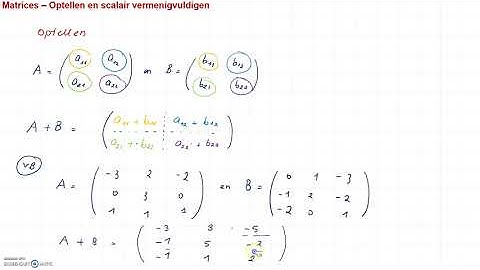 Matrices – Optellen en scalair vermenigvuldigen
Optellen
A = ( a₁₁ a₁₂ en B = ( b₁₁ b₁₂
a₂₁ a₂₂ ) b₂₁ b₂₂ )
A + B = ( a₁₁ + b₁₁ a₁₂ + b₁₂
a₂₁ + b₂₁ a₂₂ + b₂₂ )
vB
A = ( -3 2 -2 en B = ( 0 1 -3
0 3 0 -1 2 -2
1 1 1 ) -2 0 1 )
A + B = ( -3 3 -5
-1 5 -2
-1 1 2 )